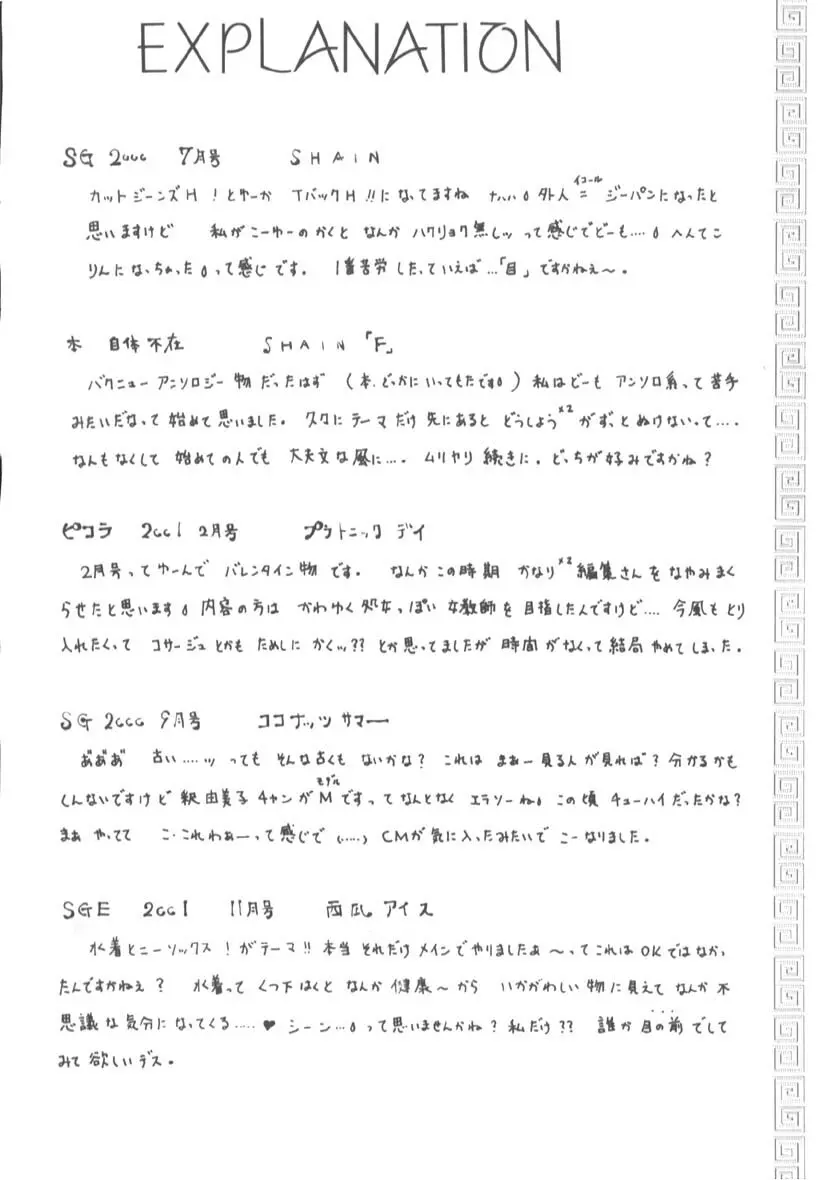 EXPLANATION
SG 2000 7月号 SHAIN
カットジーンズH!とゆーか TバックH!!になってますね ナハハ。外人=ジーパンになったと
イコール
思いますけど 私がこーゆーのかくと なんか ハクリョク無しッって感じでどーも....。へんてこ
りんになっちゃった。って感じです。1番苦労したっていえば...「目」ですかねぇ〜。
本 自体不在 SHAIN「F」
バクニューアンソロジー物だったはず (本、どっかにいってもたです。) 私はどーも アンソロ系って苦手
みたいだなって始めて思いました。 テーマだけ先にあると どうしよう×2がずっとぬけないって....
なんもなくして 始めての人でも 大丈文な風に.... ムリヤリ続きに。どっちが好みですかね?
ピコラ 2001 2月号 プラトニック デイ
2月号ってゆーんで バレンタイン物です。 なんかこの時期 かなり×2編集さんをなやみまく
らせたと思います。内容の方は かわゆく処女っぽい女教師を目指したんですけど.... 今風もとり
入れたくって コサージュとかも ためしに かくッ?? とか思ってましたが 時間がなくって結局やめてしまった。
SG 2000 9月号 ココナッツ サマー
あ゛あ゛あ゛ 古い....ッ っても そんな古くも ないかな? これは まぁー見る人が見れば?分かるかも
しんないですけど 釈由美子チャンがMですって なんとなく エラソーね。この頃 チューハイだったかな?
モデル
まぁ やってて こ・これわぁーって感じで(.....) CMが気に入ったみたいで こーなりました。
SGE 2001 11月号 西瓜 アイス
水着とニーソックス!がテーマ!!本当 それだけ メインでやりましたぁ〜ってこれは OKではなかっ
たんですかねぇ? 水着って くつ下はくと なんか 健康〜から いかがわしい物に見えて なんか 不
思議な気分になってくる.....♥ シーン...。って思いませんかね?私だけ?? 誰か 目の前でして
みて欲しいデス。